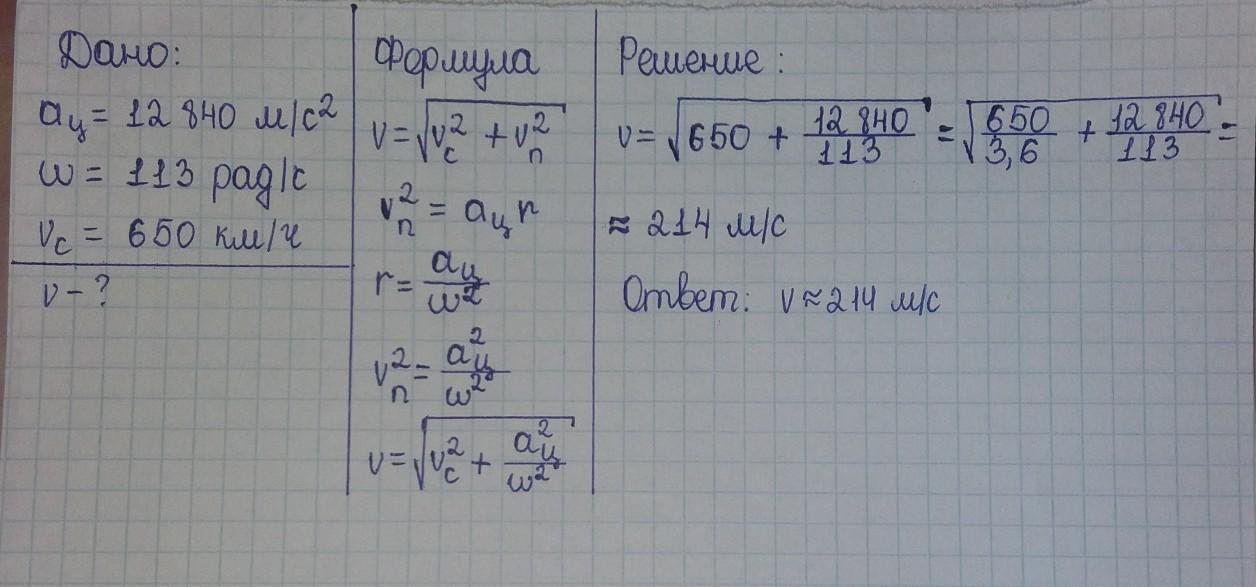 Дано:
aц = 12 840 м/с²
ω = 113 рад/с
vс = 650 км/ч
v - ?
Формула
v = √(vс² + vп²)
vп² = aц r
r = aц/ω²
vп² = aц²/ω²
v = √(vс² + aц²/ω²)
Решение:
v = √(650 + 12 840/113) = √(650/3,6 + 12 840/113) =
≈ 214 м/с
Ответ: v ≈ 214 м/с